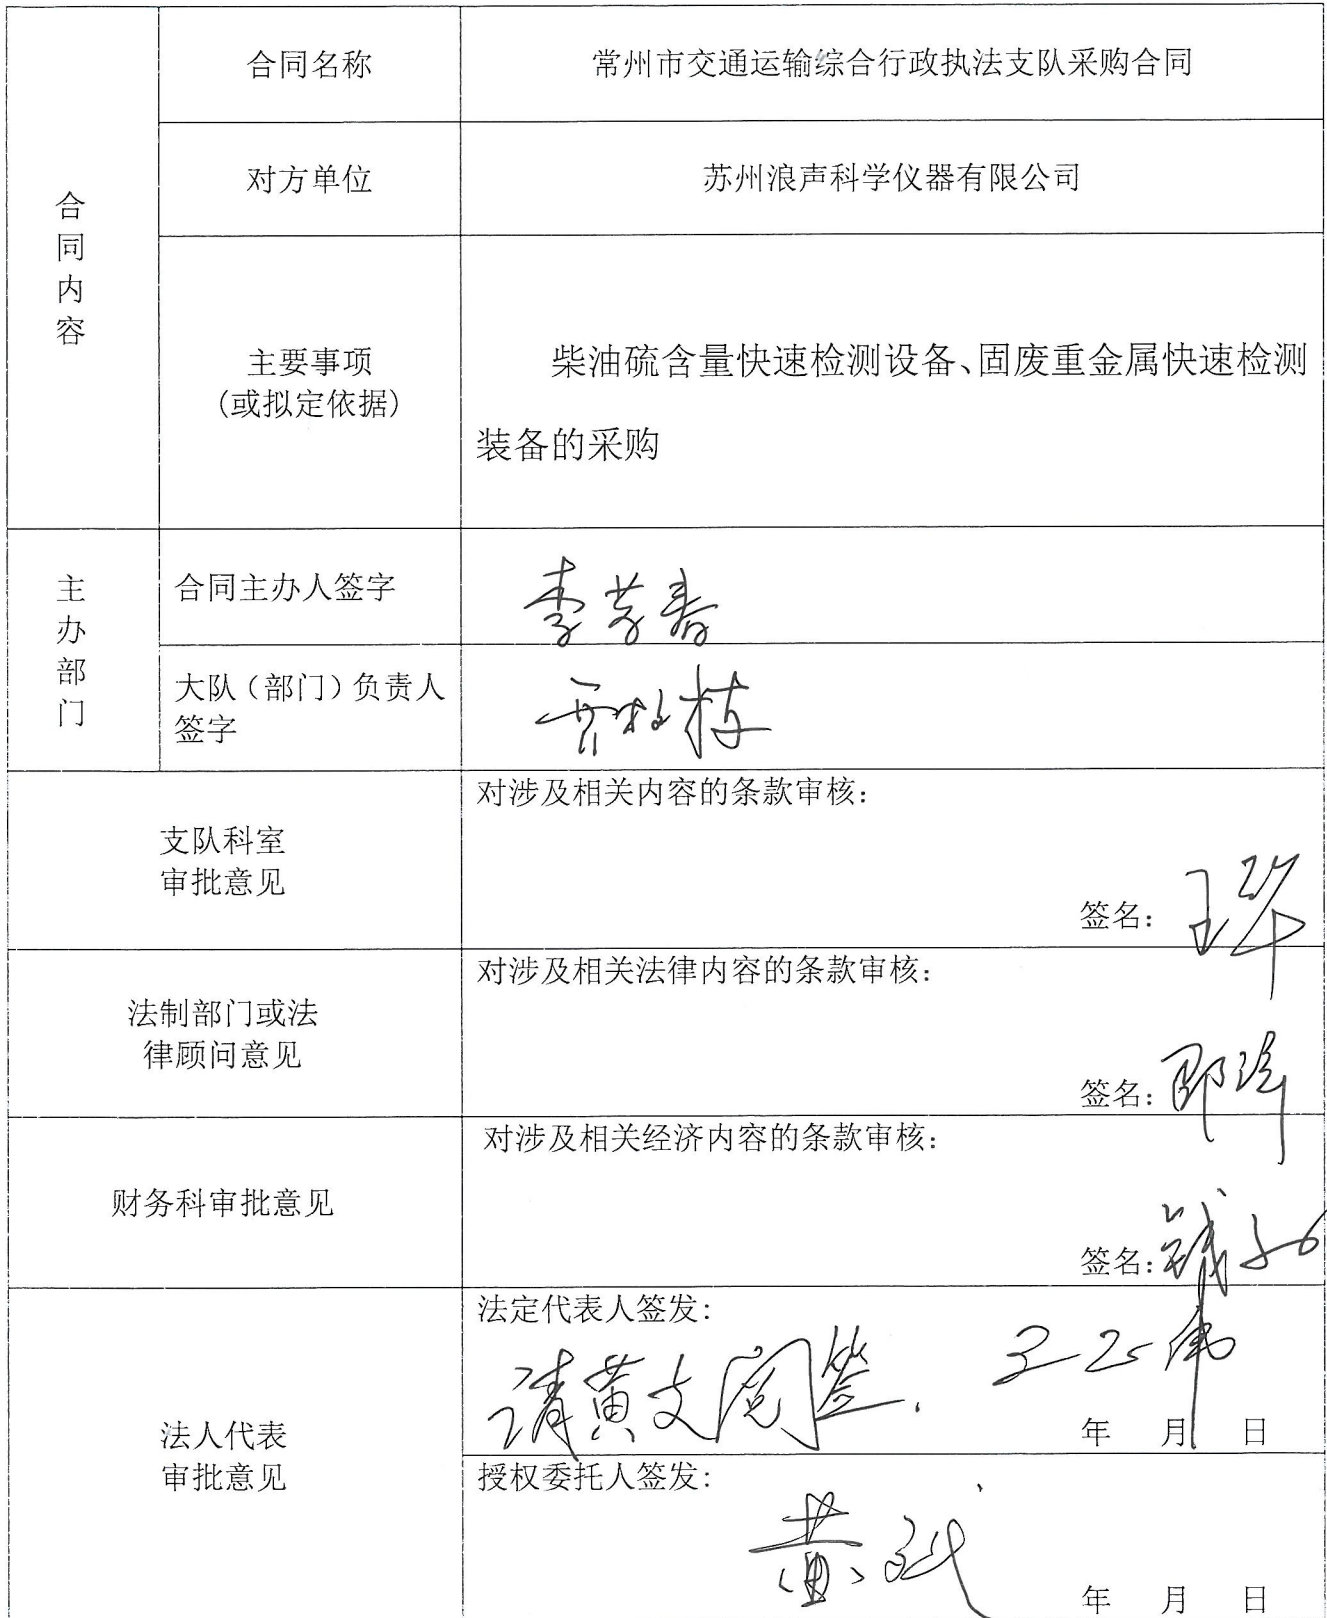 合同内容
合同名称
常州市交通运输综合行政执法支队采购合同
对方单位
苏州浪声科学仪器有限公司
主要事项
(或拟定依据)
柴油硫含量快速检测设备、固废重金属快速检测
装备的采购
主办部门
合同主办人签字
李芳春
大队（部门）负责人
签字
支队科室
审批意见
对涉及相关内容的条款审核：
签名：
法制部门或法
律顾问意见
对涉及相关法律内容的条款审核：
签名：
财务科审批意见
对涉及相关经济内容的条款审核：
签名：
法人代表
审批意见
法定代表人签发：
请黄支阅签.
年 月 日
授权委托人签发：
黄
年 月 日